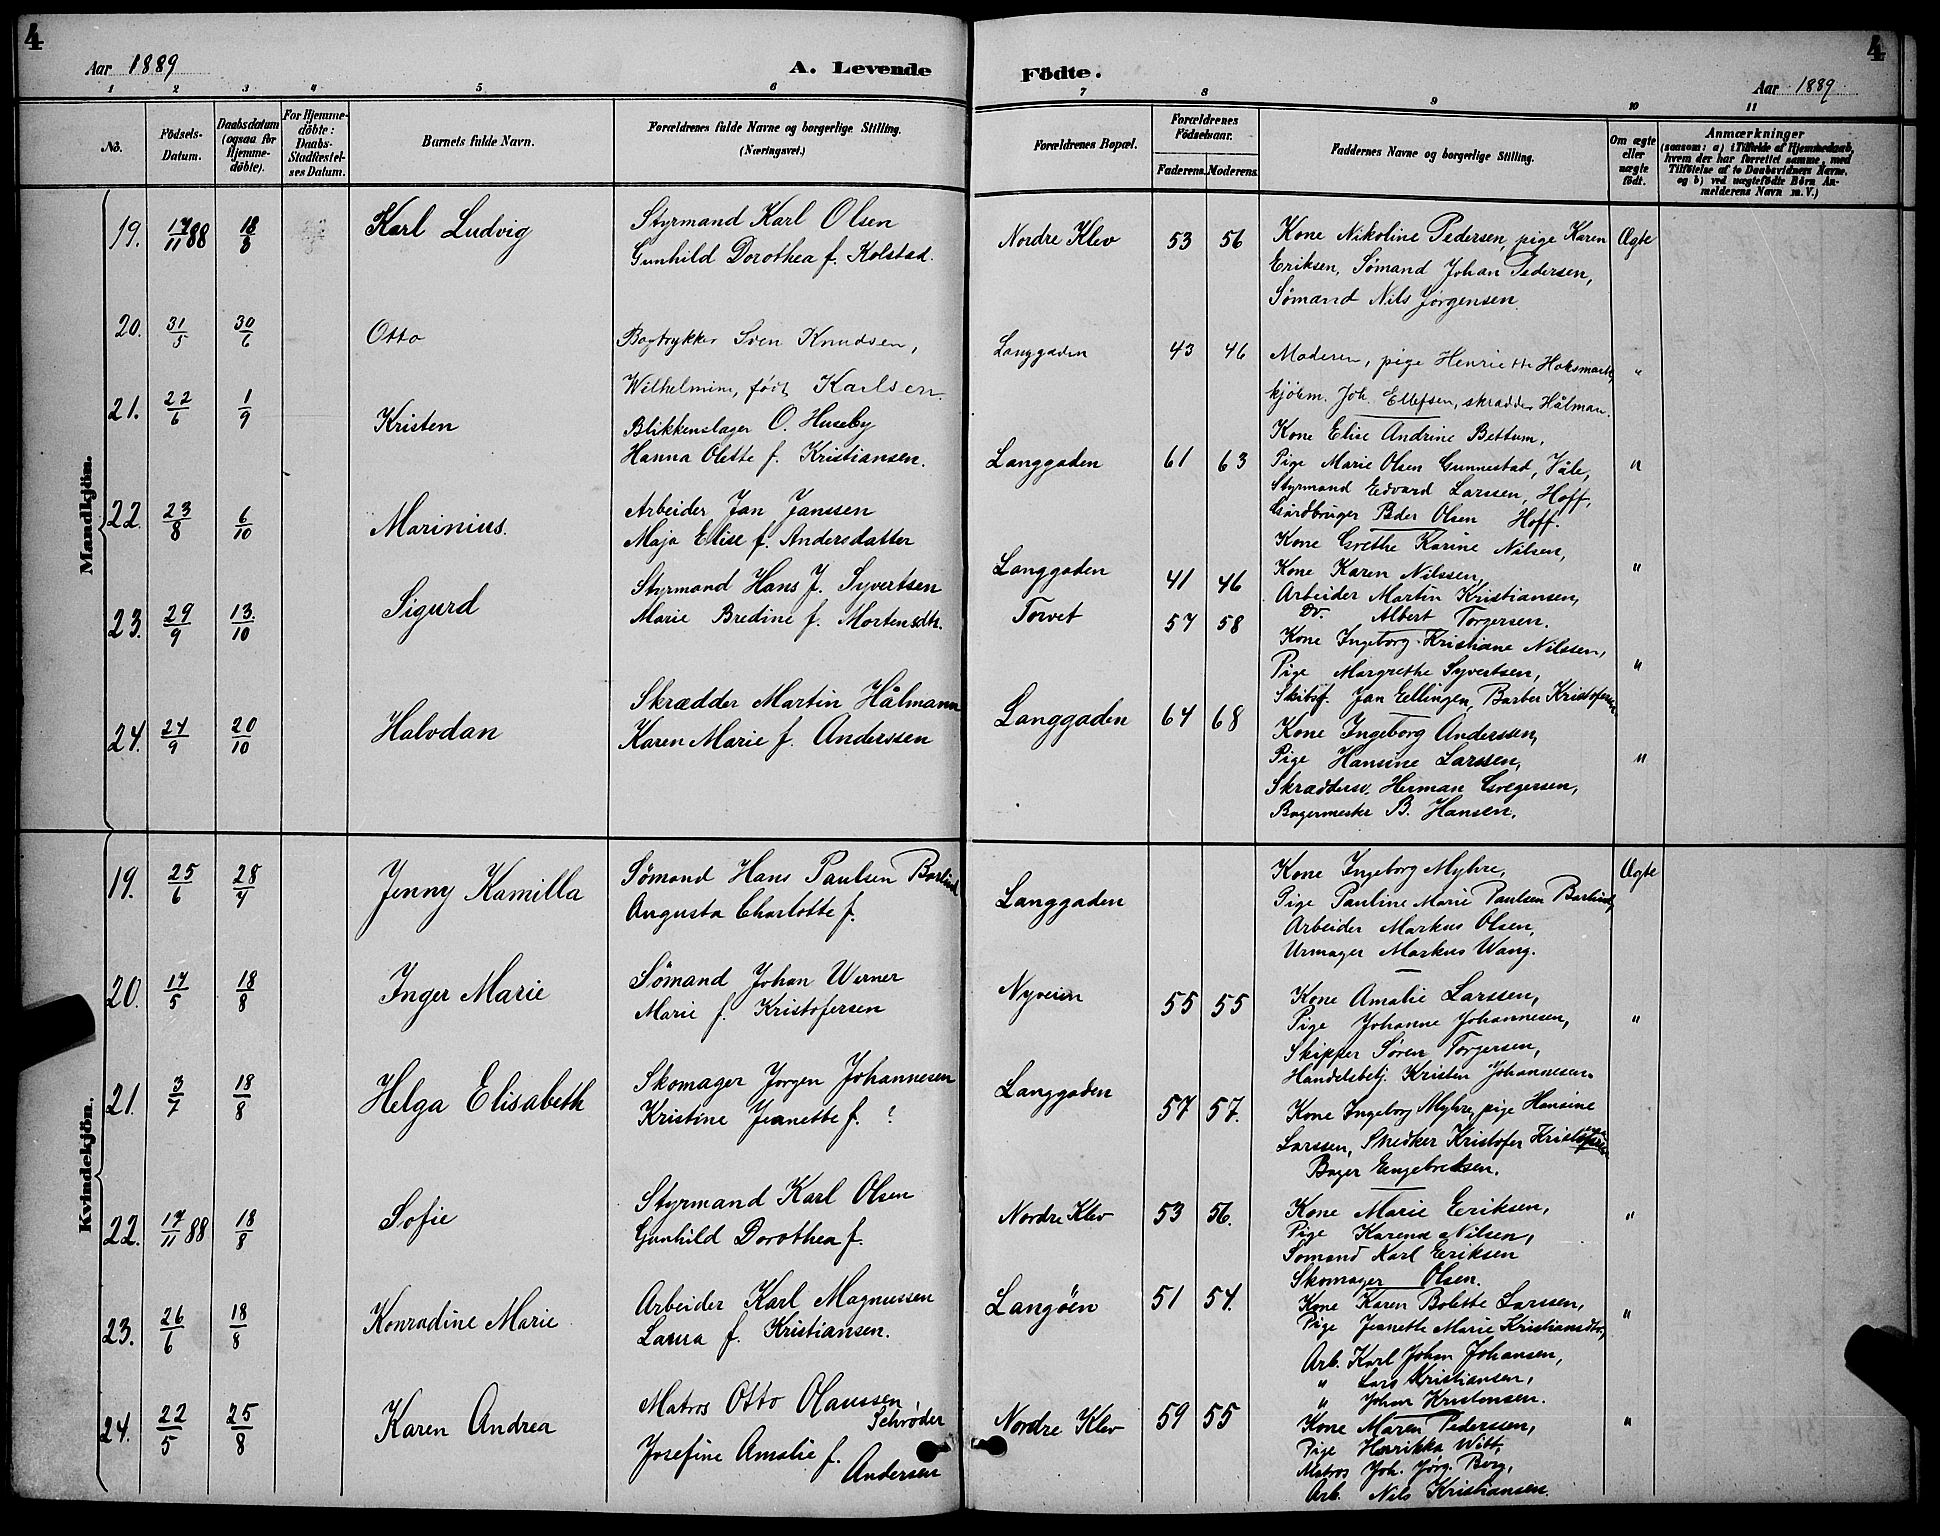 4
Aar 1889
A. Levende
1 2 3 4 5 6
No.
Födsels-
Datum.
Daabsdatum
(ogsaa for
Hjemme-
döbte).
For Hjemme-
döbte:
Daabs-
Stadfæstel-
ses Datum.
Barnets fulde Navn.
Forældrenes fulde Navne og borgerlige Stilling.
(Næringsvei.)
Mandkjön.
19. 17/11 88 18/3 Karl Ludvig Styrmand Karl Olsen
Gunhild Dorothea f. Kolstad.
20. 31/5 30/6 Otto Bogtrykker Sven Knudsen,
Wilhelmine, født Karlsen.
21. 22/6 1/9 Kristen Blikkenslager O. Huseby
Hanna Olette f. Kristiansen.
22. 23/8 6/10 Marinius. Arbeider Jan Janssen
Maja Elise f. Andersdatter
23. 29/9 13./10 Sigurd Styrmand Hans J. Syvertsen
Marie Bredine f. Mortensdtr.
24. 24/9 20/10 Halvdan Skrædder Martin Hålmann
Karen Marie f. Anderssen
Kvindekjön.
19. 25/6 28/7 Jenny Kamilla Sømand Hans Paulsen Barlind
Augusta Charlotte f.
20. 17/5 18/8 Inger Marie Sømand Johan Werner
Marie f. Kristofersen
21. 3/7 18/8 Helga Elisabeth Skomager Jørgen Johannesen
Kristine Jeanette f. ?
22. 17/11 88 18/8 Sofie Styrmand Karl Olsen
Gunhild Dorothea f.
23. 26/6 18/8 Konradine Marie Arbeider Karl Magnussen
Laura f. Kristiansen.
24. 22/5 25/8 Karen Andrea Matros Otto Olaussen
Schrøder
Josefine Amalie f.
Andersen
4
Födte.
Aar 1889.
7 8 9 10 11
Forældrenes Bopæl.
Forældrenes
Födselsaar.
Faderens. Moderens.
Faddernes Navne og borgerlige Stilling.
Om ægte
eller
uægte
födt.
Anmærkninger
(saasom: a) i Tilfælde af Hjemmedaab,
hvem der har forrettet samme, med
Tilföielse af to Daabsvidners Navne.
og b) ved uægtefödte Börn An-
melderens Navn m. V.)
Nordre Klev 53 56 Kone Nikoline Pedersen, pige Karen Ægte
Eriksen, Sømand Johan Pedersen,
Sømand Nils Jørgensen
Langgaden 43 46 Moderen, pige Henriette Haksmark, "
kjøbm. Joh. Ellefsen, skrædder Hålman.
Kone Elise Andrine Bettum,
Langgaden 61 63 Pige Marie Olsen Gunnestad, Våle, "
Styrmand Edvard Larssen, Hoff,
Gårdbruger Peder Olsen Hoff.
Kone Grethe Karine Nilsen,
Langgaden 41 46 Kone Karen Nilssen, "
Arbeider Martin Kristiansen,
Do. Albert Torgersen.
Torvet 57 58 Kone Ingeborg Kristiane Nilssen,
Pige Margrethe Syvertsen, "
Skibsf. Jan Ellingen, Barber Kristofersen
Langgaden 64 68 Kone Ingeborg Anderssen,
Pige Hansine Larssen, "
Skræddersv. Herman Gregersen,
Bagermester B. Hansen.
Langgaden Kone Ingeborg Myhre, Ægte
Pige Pauline Marie Paulsen Barlind,
Arbeider Markus Olsen,
Urmager Markus Wang.
Nyveien 55 55 Kone Amalie Larssen,
Pige Johanne Johannesen, "
Skipper Søren Torgersen,
Handelsbetj. Kristen Johannesen.
Langgaden 57 57. Kone Ingeborg Myhre, pige Hansine
Larssen, Snedker Kristofer Kristofersen
Bager Engebretsen.
Nordre Klev 53 56. Kone Marie Eriksen, "
Pige Karena Nilsen,
Sømand Karl Eriksen
Skomager Olsen.
Langøen 51 54. Kone Karen Bolette Larssen, "
Pige Jeanette Marie Kristiansdtr,
Arb. Karl Johan Johansen,
" Lars Kristiansen,
" Johan Kristensen.
Nordre Klev 59 55 Kone Maren Pedersen, "
Pige Henrikka Witt,
Matros Joh. Jørg. Berg,
Arb. Nils Kristiansen.